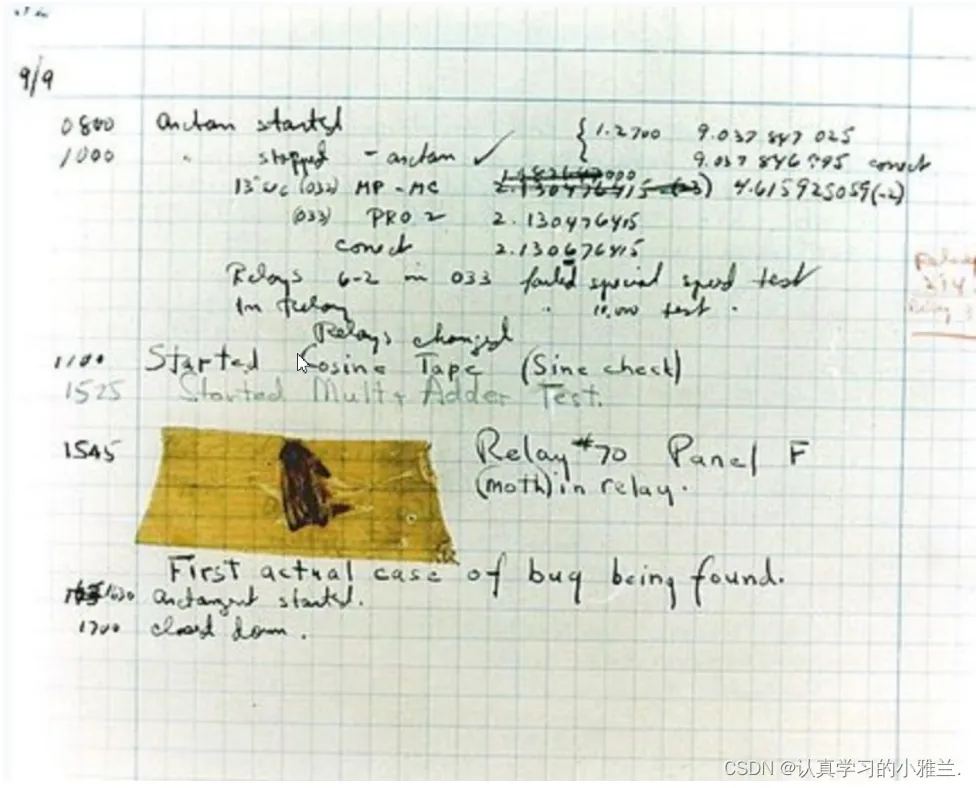 9/9
0800 Antan started
1000 " stopped - antan ✓ { 1.2700 9.037 847 025
9.037 846 795 conect
13"uc (032) MP - MC 2.130476415 (-3) 4.615925059(-2)
(033) PRO 2 2.130476415
conect 2.130676415
Relays 6-2 in 033 failed special speed test
In Relay " 11,000 test .
Relays changed
1100 Started Cosine Tape (Sine check)
1525 Started Mult+ Adder Test.
1545 Relay #70 Panel F
(moth) in relay.
First actual case of bug being found.
1630 Antangent started.
1700 closed down .
CSDN @认真学习的小雅兰.